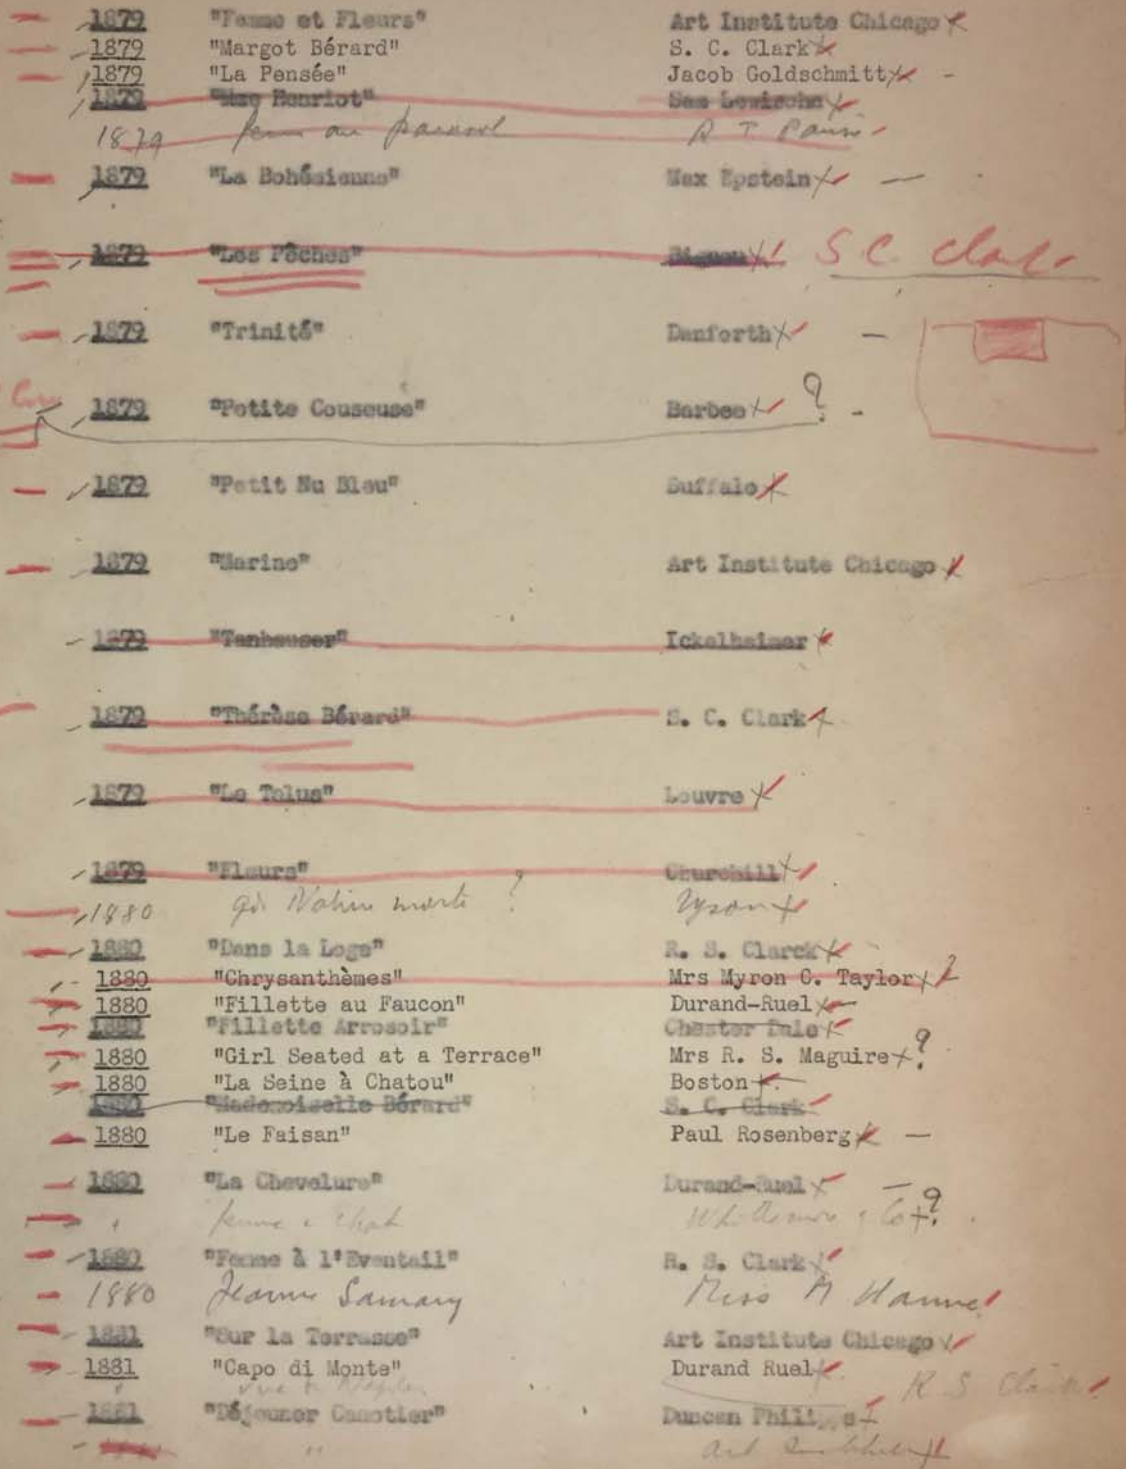 1879 "Femme et Fleurs" Art Institute Chicago
1879 "Margot Bérard" S. C. Clark
1879 "La Pensée" Jacob Goldschmitt
1879 "Mme Henriot" Sam Lewisohn
1879 au parasol R T
1879 "La Bohésienne" Max Epstein
1879 "Les Pêches" Bignou S C Clark
1879 "Trinité" Danforth
1879 "Petite Couseuse" Barbee ?
1879 "Petit Nu Bleu" Buffalo
1879 "Marine" Art Institute Chicago
1879 "Tanhauser" Ickelheimer
1879 "Thérèse Bérard" S. C. Clark
1879 "Le Talus" Louvre
1879 "Fleurs" Churchill
1880 morte ? Tyson
1880 "Dans la Loge" R. S. Clarck
1880 "Chrysanthèmes" Mrs Myron C. Taylor ?
1880 "Fillette au Faucon" Durand-Ruel
1880 "Fillette Arrosoir" Chester Dale
1880 "Girl Seated at a Terrace" Mrs R. S. Maguire ?
1880 "La Seine à Chatou" Boston
1880 "Mademoiselle Bérard" S. C. Clark
1880 "Le Faisan" Paul Rosenberg
1880 "La Chevelure" Durand-Ruel
" femme chat ?
1880 "Femme à l'Eventail" R. S. Clark
1880 Jeanne Samary Miss M Hanna
1881 "Sur la Terrasse" Art Institute Chicago
1881 "Capo di Monte" Durand Ruel
R S Clark
1881 "Déjeuner Canotier" Duncan Phillips
"